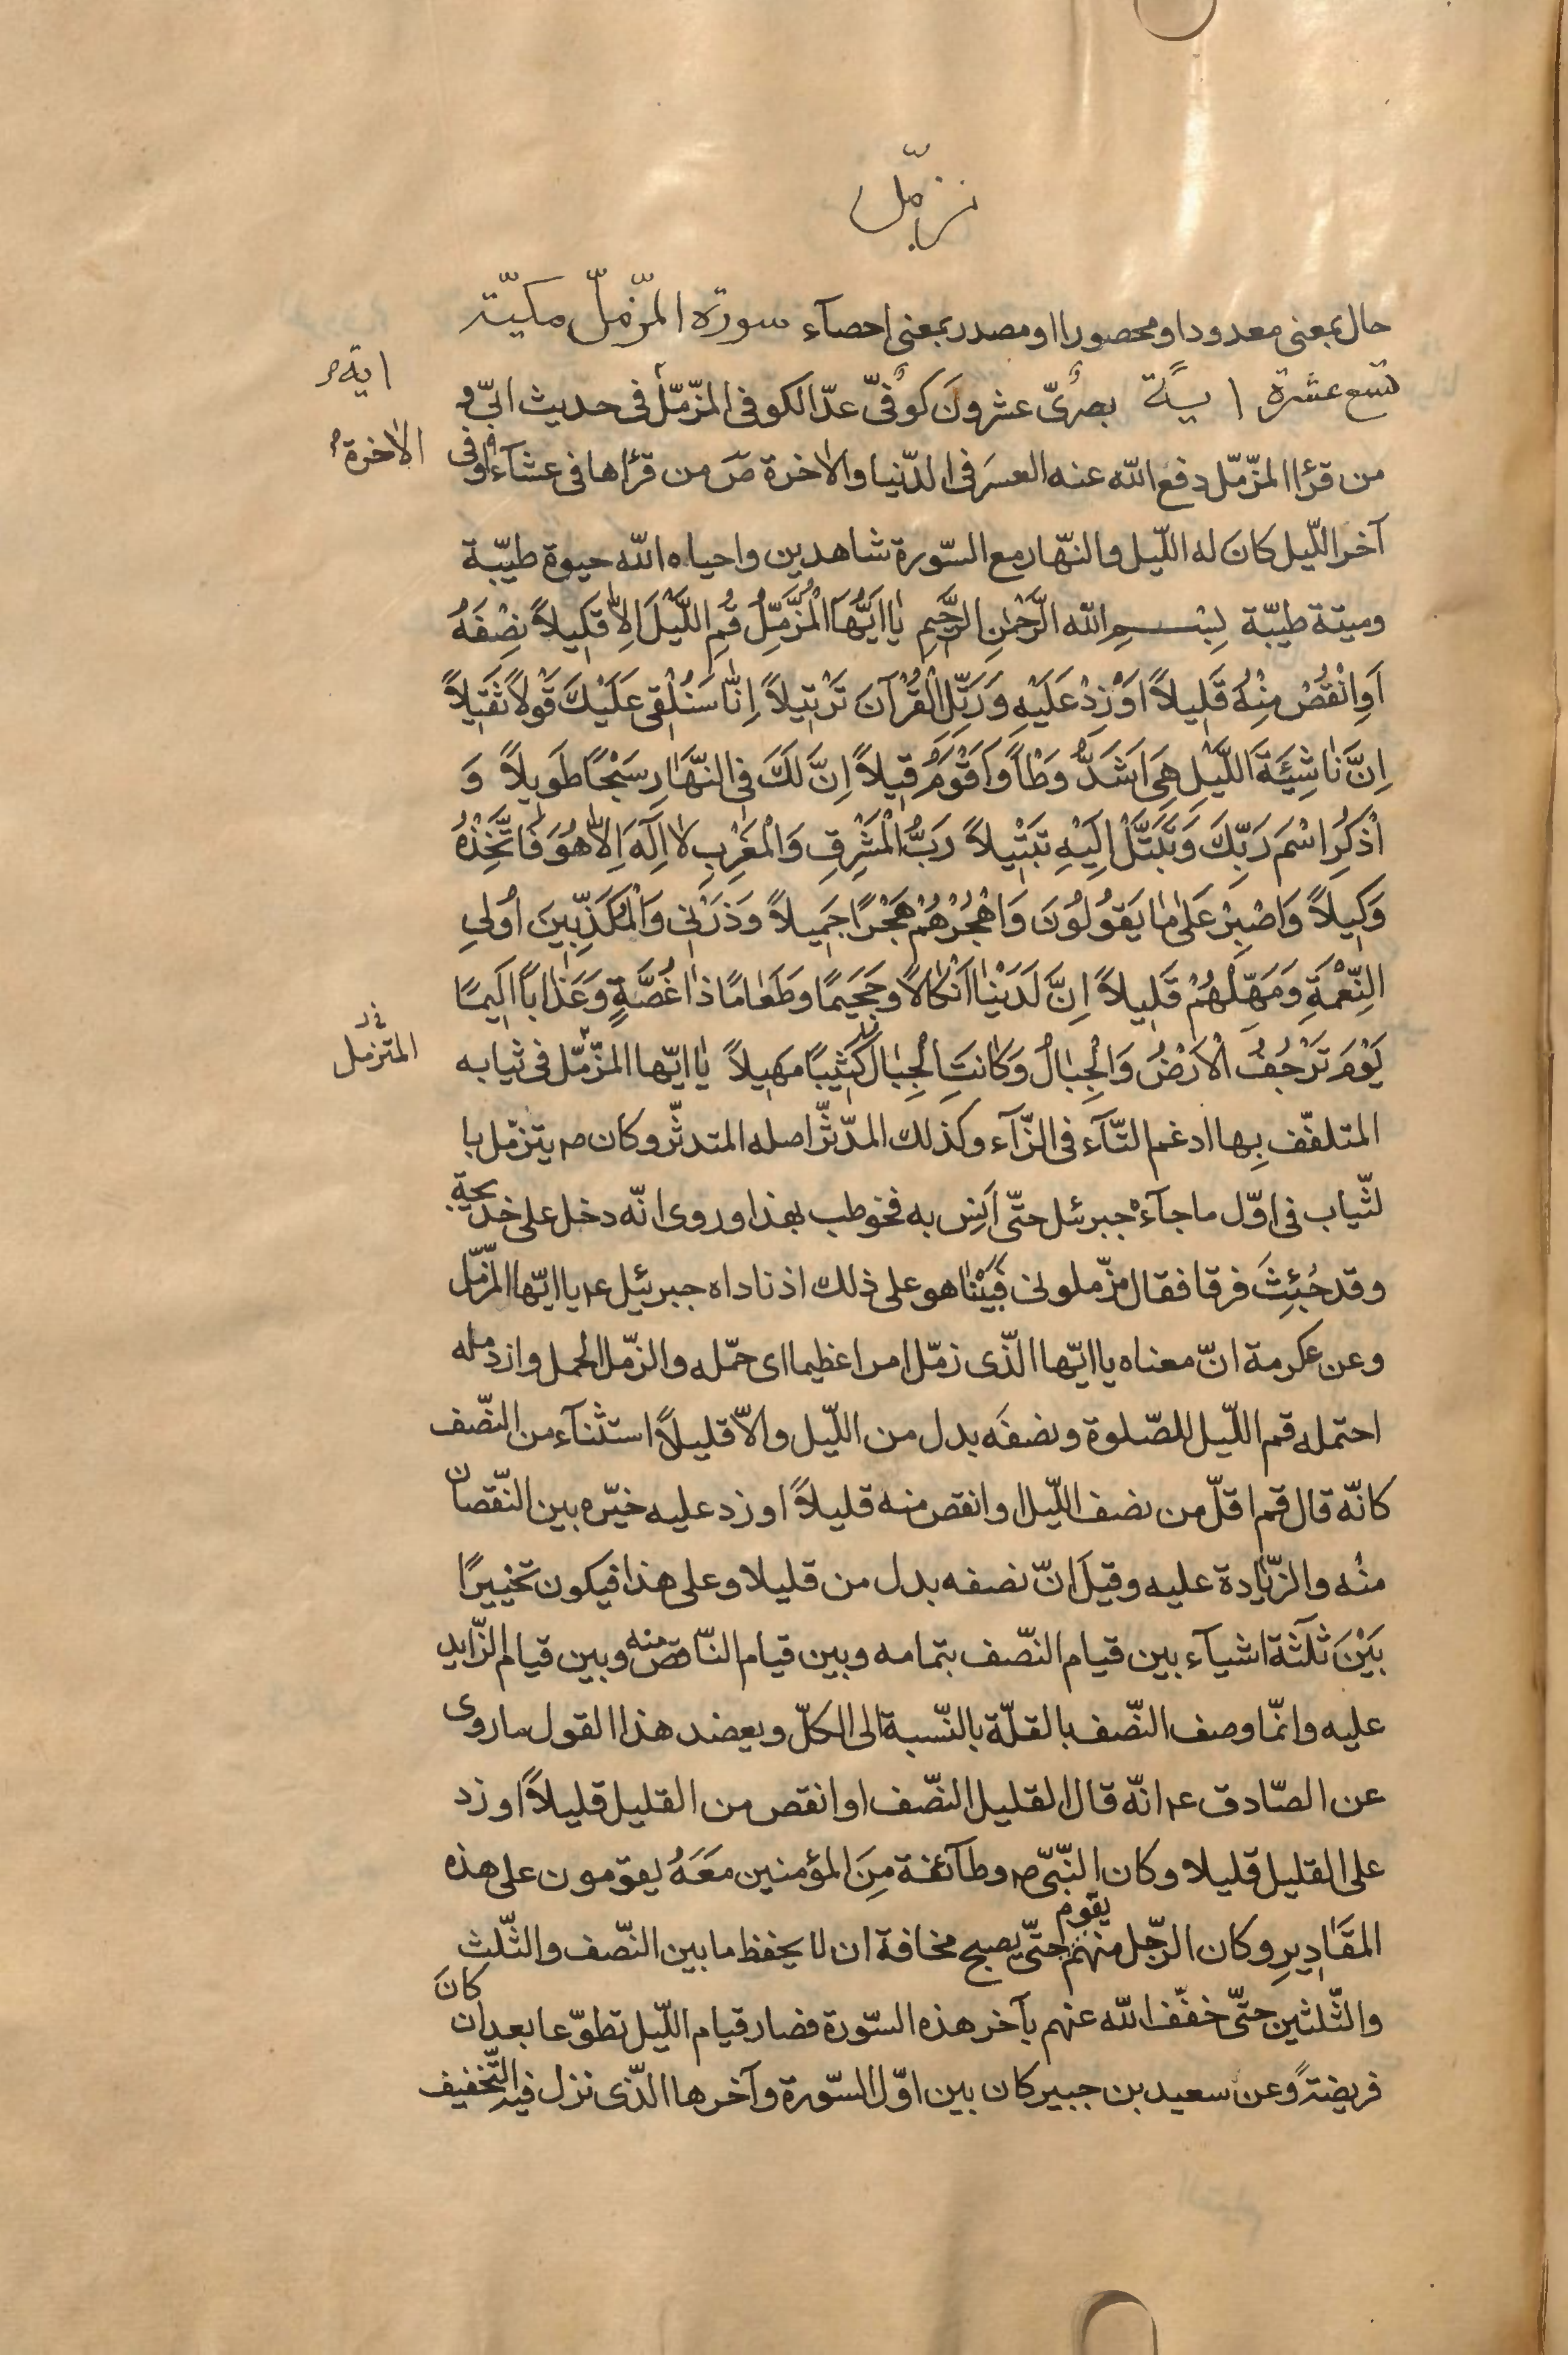 مزمّل
حال بمعنى معدودا ومحصورا او مصدر بمعنى احصآء سورة المزّمّل مكيّة
تسع عشرة اية بصرىّ عشرون كوفىّ عدّ الكوفى المزّمّل فى حديث ابىّ و
اية
من قرأ المزّمّل دفع الله عنه العسر فى الدّنيا والاخرة صَ من قرأها فى عشآء او فى
الاخرة
آخر اللّيل كان له اللّيل والنّهار مع السّورة شاهدين واحياه الله حيوة طيّبة
وميتة طيّبة بِسْمِ اللّه الرَّحْمٰنِ الرَّحيمِ يٰا اَيُّهَا الْمُزَّمِّلُ قُمِ اللَّيْلَ اِلاّٰ قَليلاً نِصْفَهُ
اَوِ انْقُصْ مِنْهُ قَليلاً اَوْ زِدْ عَلَيْهِ وَرَتِّلِ الْقُرْآنَ تَرْتيلاً اِنّٰا سَنُلْقى عَلَيْكَ قَوْلاً ثَقيلاً
اِنَّ نٰاشِئَةَ اللَّيْلِ هِىَ اَشَدُّ وَطْأً وَاَقْوَمُ قيلاً اِنَّ لَكَ فِى النَّهٰارِ سَبْحًا طَويلاً وَ
اذْكُرِ اسْمَ رَبِّكَ وَتَبَتَّلْ اِلَيْهِ تَبْتيلاً رَبُّ الْمَشْرِقِ وَالْمَغْرِبِ لاٰ اِلٰهَ اِلاّٰ هُوَ فَاتَّخِذْهُ
وَكيلاً وَاصْبِرْ عَلٰى مٰا يَقُولُونَ وَاهْجُرْهُمْ هَجْرًا جَميلاً وَذَرْنى وَالْمُكَذِّبينَ اُولِى
النَّعْمَةِ وَمَهِّلْهُمْ قَليلاً اِنَّ لَدَيْنٰا اَنْكٰالاً وَجَحيمًا وَطَعٰامًا ذٰا غُصَّةٍ وَعَذٰابًا اَليمًا
يَوْمَ تَرْجُفُ الْاَرْضُ وَالْجِبٰالُ وَكٰانَتِ الْجِبٰالُ كَثيبًا مَهيلاً يٰا ايّها المزّمّل فى ثيابه
المتزمل
المتلفّف بها ادغم التّآء فى الزّآء وكذلك المدّثّر اصله المتدثّر وكان ص يتزمّل با
لثّياب فى اوّل ما جآءه جبرئل حتّى اَنِس به فخوطب بهذا وروى انّه دخل على خديجة
وقد جُئِثَ فرقا فقال مزّملونى فَبَيْنٰا هو على ذلك اذ ناداه جبرئيل ع يا ايّها المزّمّل
وعن عكرمة انّ معناه يا ايّها الّذى زمّل امرا عظيما اى حمّله والزّمل الحمل وازدمله
احتمله قم اللّيل للصّلوة ونصفَه بدل من اللّيل والاّ قليلاً استثنآء من النّصف
كانّه قال قم اقلّ من نصف اللّيل او انقص منه قليلاً او زد عليه خيّره بين النّقصان
منْه والزّيٰادة عليه وقيل انّ نصفه بدل من قليلا وعلى هذا فيكون تخييرًا
بَيْنَ ثلٰثة اشيآء بين قيام النّصف بتمامه وبين قيام النّاقص منه وبين قيام الزّايد
عليه وانّما وصف النّصف بالقلّة بالنّسبة الى الكلّ ويعضد هذا القول ما روى
عن الصّادق ع انّه قال القليل النّصف او انقص من القليل قليلاً او زد
على القليل قليلا وكان النّبىّ ص وطآئفة مِنَ المؤمنين مَعَهُ يقومون على هذه
المقٰاديرِ وكان الرّجل منهم يقوم حتّى يصبح مخافة ان لا يحفظ ما بين النّصف والثّلث
والثّلثين حتّى خفّف الله عنهم بآخر هذه السّورة فصار قيام اللّيل تطوّعا بعد ان كانَ
فريضةً وعن سعيد بن جبير كان بين اوّل السّورة وآخرها الّذى نزل فيه التّخفيف